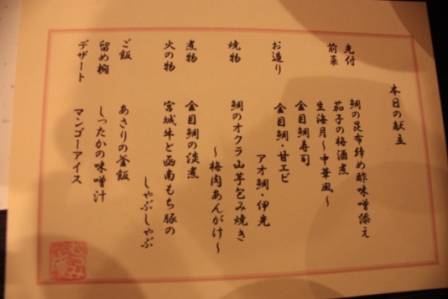 本日の献立
先付 鯛の昆布締め酢味噌添え
前菜 茄子の梅酒煮
生海月〜中華風〜
金目鯛寿司
お造り 金目鯛・甘エビ
アオ鯛・伊光
焼物 鯛のオクラ山芋包み焼き
〜梅肉あんがけ〜
煮物 金目鯛の淡煮
火の物 宮城牛と函南もち豚の
しゃぶしゃぶ
ご飯 あさりの釜飯
留め椀 しったかの味噌汁
デザート マンゴーアイス